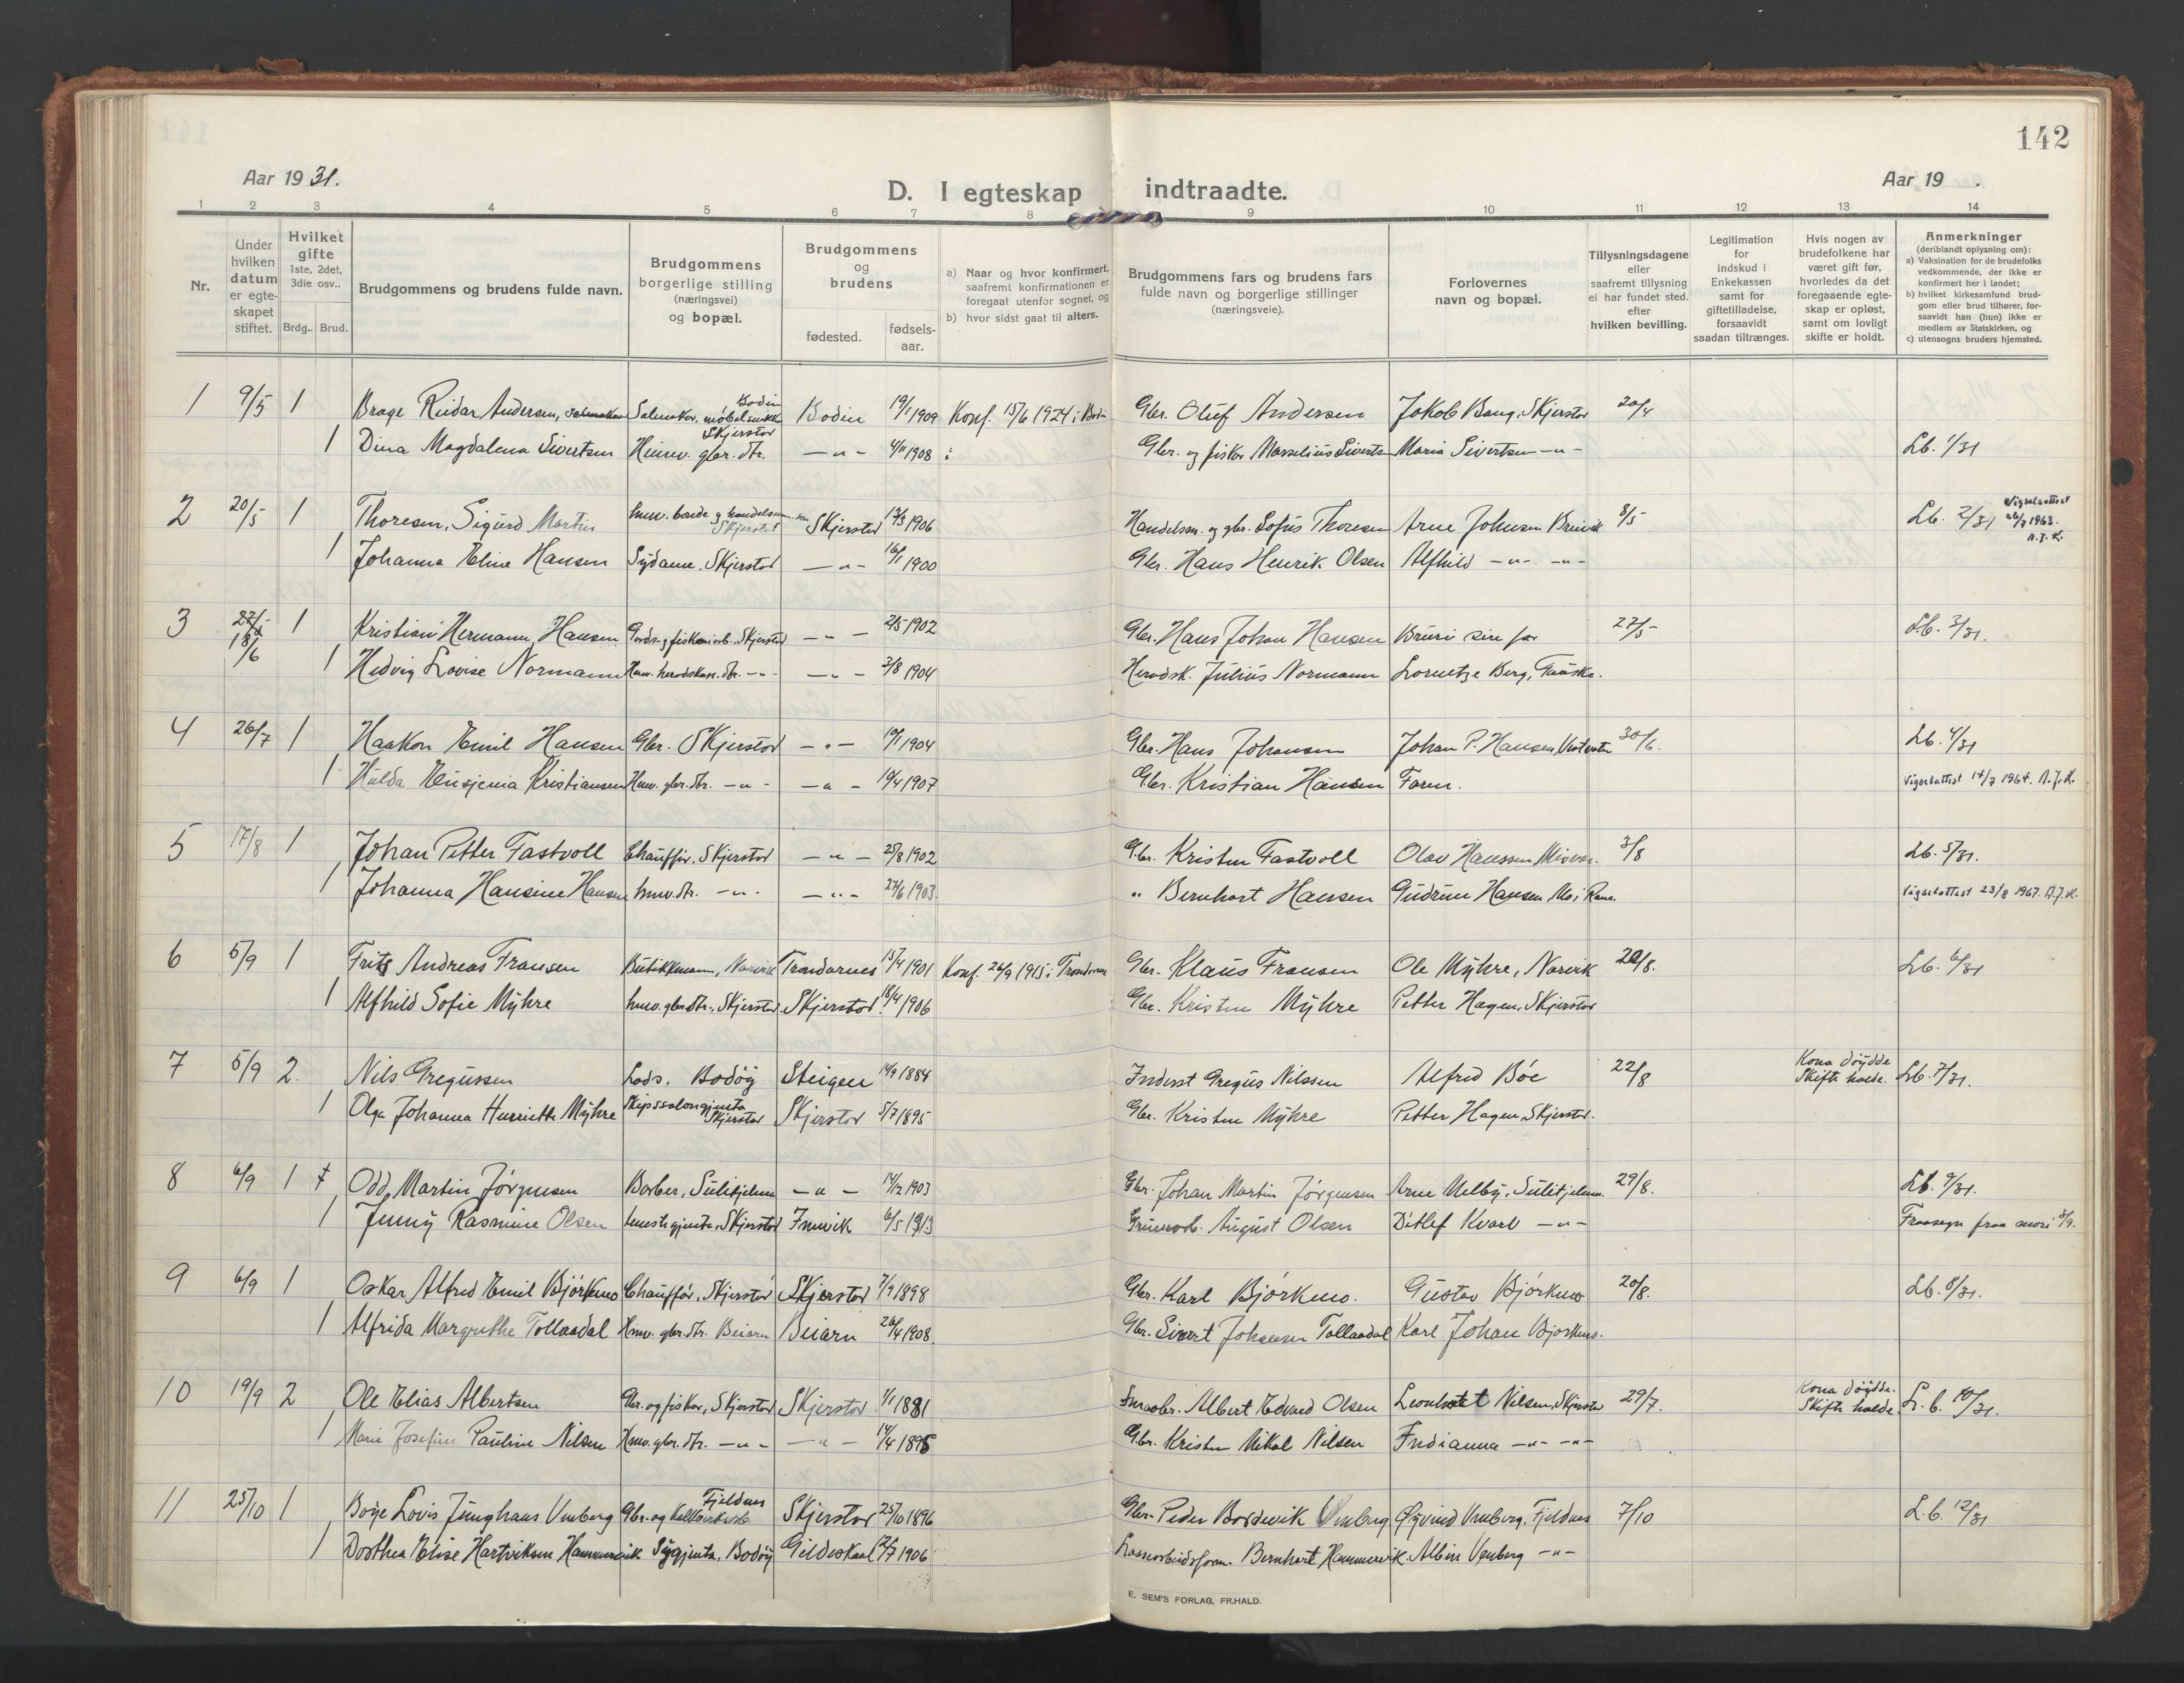 142
Aar 1931.
D. I egteskap indtraadte.
Aar 19 .
1 2 3 4 5 6 7 8 9 10 11 12 13 14
Nr.
Under hvilken datum er egte-skapet stiftet.
Hvilket gifte 1ste, 2det, 3die osv..
Brdg.. Brud.
Brudgommens og brudens fulde navn.
Brudgommens borgerlige stilling (næringsvei) og bopæl.
Brudgommens og brudens
fødested.
fødsels-aar.
a) Naar og hvor konfirmert, saafremt konfirmationen er foregaat utenfor sognet, og
b) hvor sidst gaat til alters.
Brudgommens fars og brudens fars fulde navn og borgerlige stillinger (næringsveie).
Forlovernes navn og bopæl.
Tillysningsdagene eller saafremt tillysning ei har fundet sted. efter hvilken bevilling.
Legitimation for indskud i Enkekassen samt for giftetilladelse, forsaavidt saadan tiltrænges.
Hvis nogen av brudefolkene har været gift før, hvorledes da det foregaaende egte-skap er opløst, samt om lovligt skifte er holdt.
Anmerkninger (deriblandt oplysning om):
a) Vaksination for de brudefolks vedkommende, der ikke er konfirmert her i landet;
b) hvilket kirkesamfund brud-gom eller brud tilhører, for-saavidt han (hun) ikke er medlem av Statskirken, og
c) utensogns bruders hjemsted.
1 9/5 1 Brage Reidar Andersen, Bodin 19/1 1909 Konf. 15/6 1924 i Bodin Gbr. Oluf Andersen Jakob Bang, Skjerstad 20/4
1 Dina Magdalena Sivertsen Heimv. gbr. dtr. Skjerstad —"— 4/11 1908 Gbr. og fisker Marselius Sivertsen Maria Sivertsen —"— Lb. 1/31
2 20/5 1 Thoresen, Sigurd Martin Skjerstad Skjerstad 1906 Handelsm. og gbr. Sofus Thoresen Arne Johnsen Breivik 8/5 Lb. 2/31 Vigselsattest 1963. A.J.K.
1 Johanna Eline Hansen Sydame, Skjerstad —"— 16/1 1900 Gbr. Hans Henrik Olsen Alfhild —"— —"—
3 18/6 1 Kristian Hermann Hansen Skjerstad —"— 2/5 1902 Gbr. Hans Johan Hansen Bruri sin far 27/5 Lb. 3/31.
1 Hedvig Lovise Normann Hmv. heradskass. dtr. —"— —"— 3/8 1904 Heradsk. Julius Normann Lornetze Berg, Fauske.
4 26/7 1 Haakon Emil Hansen Gbr. Skjerstad —"— 1904 Gbr. Hans Johansen Johan P. Hansen, 30/6. Lb. 4/31
1 Hulda Eusjenia Kristiansen Hmv. gbr. dtr. —"— —"— 10/4 1907 Gbr. Kristian Hansen Faren. Vigselattest 14/7 1964. A.J.K.
5 17/8 1 Johan Petter Fastvoll Chauffør, Skjerstad —"— 25/8 1902 Gbr. Kristen Fastvoll Olav Hanssen, Misvær. 3/8 Lb. 5/31.
1 Johanna Hansine Hansen hmv. dtr. —"— —"— 27/6 1903. " Bernhart Hansen Gudrun Hansen, Mo i Rana. Vigselattest 23/8 1967. A.J.K.
6 5/9 1 Frits Andreas Fransen Butikkmann, Narvik Trondarnes 15/4 1901 Konf. 26/9 1915 i Trondenes Gbr. Klaus Fransen Ole Myhre, Narvik 20/8. Lb. 6/31
1 Alfhild Sofie Myhre hmv. gbr. dtr., Skjerstad Skjerstad 18/4 1906 Gbr. Kristen Myhre Petter Hagen, Skjerstad
7 5/9 2. Nils Gregussen Lods. Bodøy Steigen 14/9 1884 Inderst Gregus Nilssen Alfred Bøe 22/8 Kona døydde Skifte halde. Lb. 7/31.
1 Olga Johanna Henriette Myhre Skipssalongjenta Skjerstad Skjerstad 5/7 1895 Gbr. Kristen Myhre Petter Hagen, Skjerstad.
8 6/9 1 Odd Martin Jørgensen Barber, Sulitjelma —"— 14/12 1903 Gbr. Johan Martin Jørgensen Arne Melby, Sulitjelma. 29/8. Lb. 9/31.
1 Jenny Rasmine Olsen tenestegjente, Skjerstad 6/5 1913 Gruvearb. August Olsen Ditlef Kvarv —"—
9 6/9 1 Oskar Alfred Emil Bjørkmo Chauffør, Skjerstad Skjerstad 7/9 1898 Gbr. Karl Bjørkmo. Gustav Bjørkmo 20/8. Lb. 8/31.
1 Alfrida Margrethe Tollaadal Hmv. gbr. dtr. Beiarn Beiarn 26/4 1908. Gbr. Sivert Johansen Tollaadal Karl Johan Bjørkmo.
10 19/9 2 Ole Elias Albertsen Gbr. og fisker, Skjerstad Skjerstad 1/1 1881 Albert Edvard Olsen Leonhart Nilsen, Skjerstad 29/7. Kona døydde. Skifte halde. L. b. 10/31.
1 Marie Josefine Pauline Nilsen Hmv. gbr. dtr. —"— —"— 14/4 1895 Gbr. Kristen Nikal Nilsen Indianna —"— —"—
11 25/10 1 Børge Lovis Junghans Venberg Gbr. og Fjeldnes Skjerstad 25/10 1896 Gbr. Peder Bordevik Venberg Øyvind Venberg, Fjeldnes 7/10 L. b. 12/31
1 Dorthea Elise Hartviksen Hammervik Sygjenta, Bodøy Gildeskaal 1906 Bernhart Hammervik. Albin Venberg —"—
E. SEM'S FORLAG, FR.HALD.